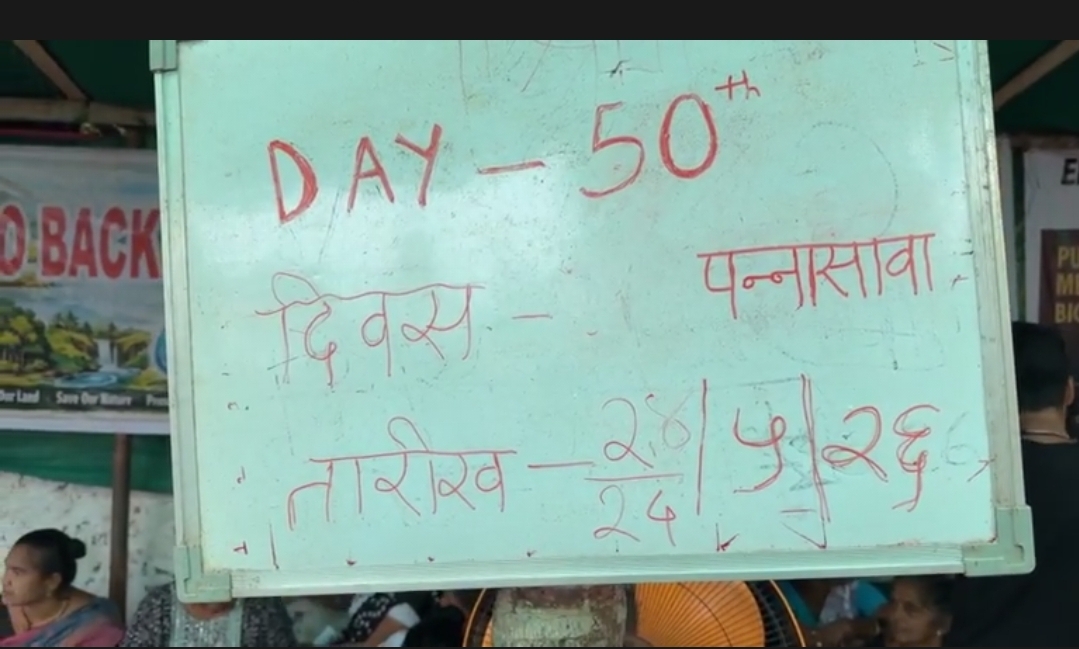 DAY - 50th
दिवस - पन्नासावा
तारीख - २४/२५ | ५ | २६
O BACK
Our Land Save Our Nature